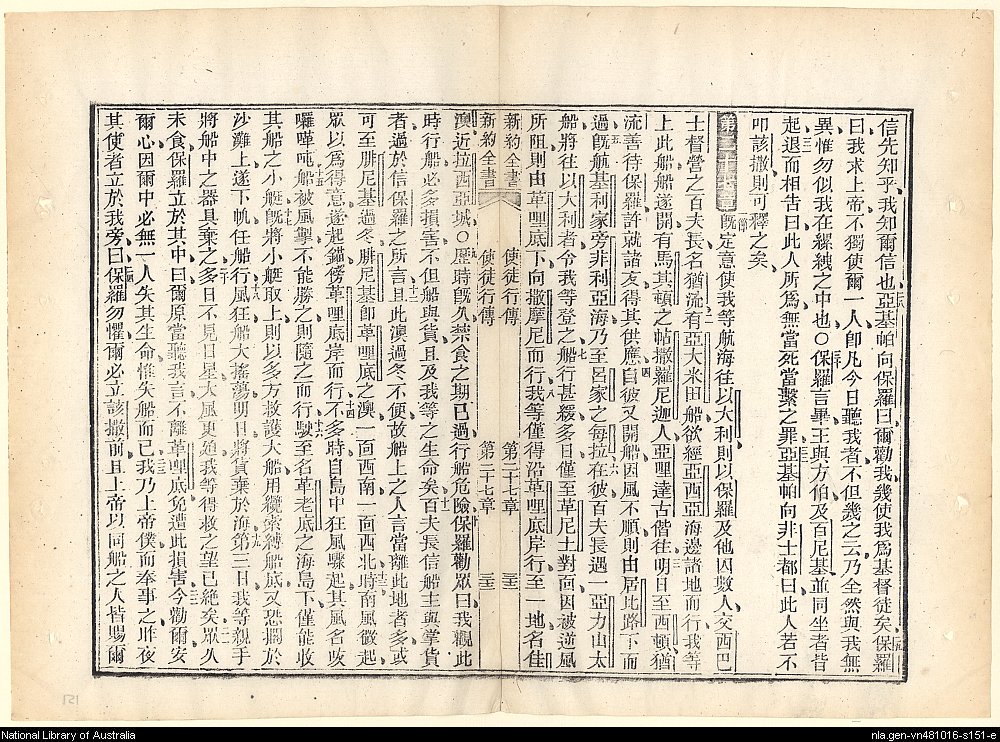 信先知乎我知爾信也亞基帕向保羅曰爾勸我幾使我爲基督徒矣保羅
曰我求上帝不獨使爾一人卽凡今日聽我者不但幾之云乃全然與我無
異惟勿似我在縲絏之中也○保羅言畢王與方伯及百尼基並同坐者皆
起退而相告曰此人所爲無當死當繫之罪亞基帕向非士都曰此人若不
叩該撒則可釋之矣
第二十七章旣定意使我等航海往以大利則以保羅及他囚數人交西巴
士督營之百夫長名猶流有亞大米田船欲經亞西亞海邊諸地而行我等
上此船船遂開有馬其頓之帖撒羅尼迦人亞哩達古偕往明日至西頓猶
流善待保羅許就諸友得其供應自彼又開船因風不順則由居比路下而
過旣航基利家旁非利亞海乃至呂家之每拉在彼百夫長遇一亞力山太
船將往以大利者令我等登之船行甚緩多日僅至革尼土對面因被逆風
所阻則由革哩底下向撒摩尼而行我等僅得沿革哩底岸行至一地名佳
新約全書 使徒行傳 第二十七章 三三
新約全書 使徒行傳 第二十七章 三三
澳近拉西亞城○歷時旣久禁食之期已過行船危險保羅勸眾曰我觀此
時行船必多損害不但船與貨且及我等之生命矣百夫長信船主與掌貨
者過於信保羅之所言且此澳過冬不便故船上之人言當離此地者多或
可至腓尼基過冬腓尼基卽革哩底之澳一面西南一面西北時南風微起
眾以爲得意遂起錨傍革哩底岸而行不多時自島中狂風驟起其風名友
囉嘩吨船被風擊不能勝之則隨之而行駛至名革老底之海島下僅能收
其船之小艇旣將小艇取上則以多方救護大船用纜索縛船底又恐擱於
沙灘上遂下帆任船行風狂船大搖蕩明日將貨棄於海第三日我等親手
將船中之器具棄之多日不見日星大風更迫我等得救之望已絕矣眾久
未食保羅立於其中曰爾原當聽我言不離革哩底免遭此損害今勸爾安
爾心因爾中必無一人失其生命惟失船而已我乃上帝僕而奉事之昨夜
其使者立於我旁曰保羅勿懼爾必立該撒前且上帝以同船之人皆賜爾
121
National Library of Australia
nla.gen-vn481016-s151-e